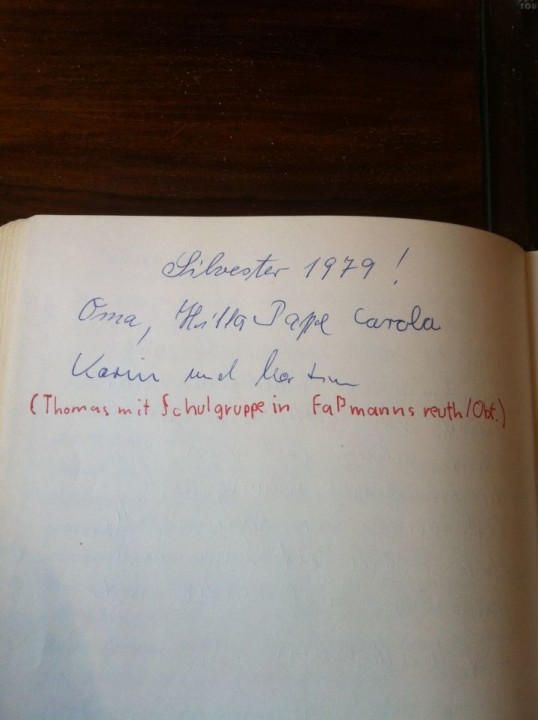 Silvester 1979!
Oma, Hilla Pape Carola
Karin und Martin
(Thomas mit Schulgruppe in Faßmannsreuth/Obf.)